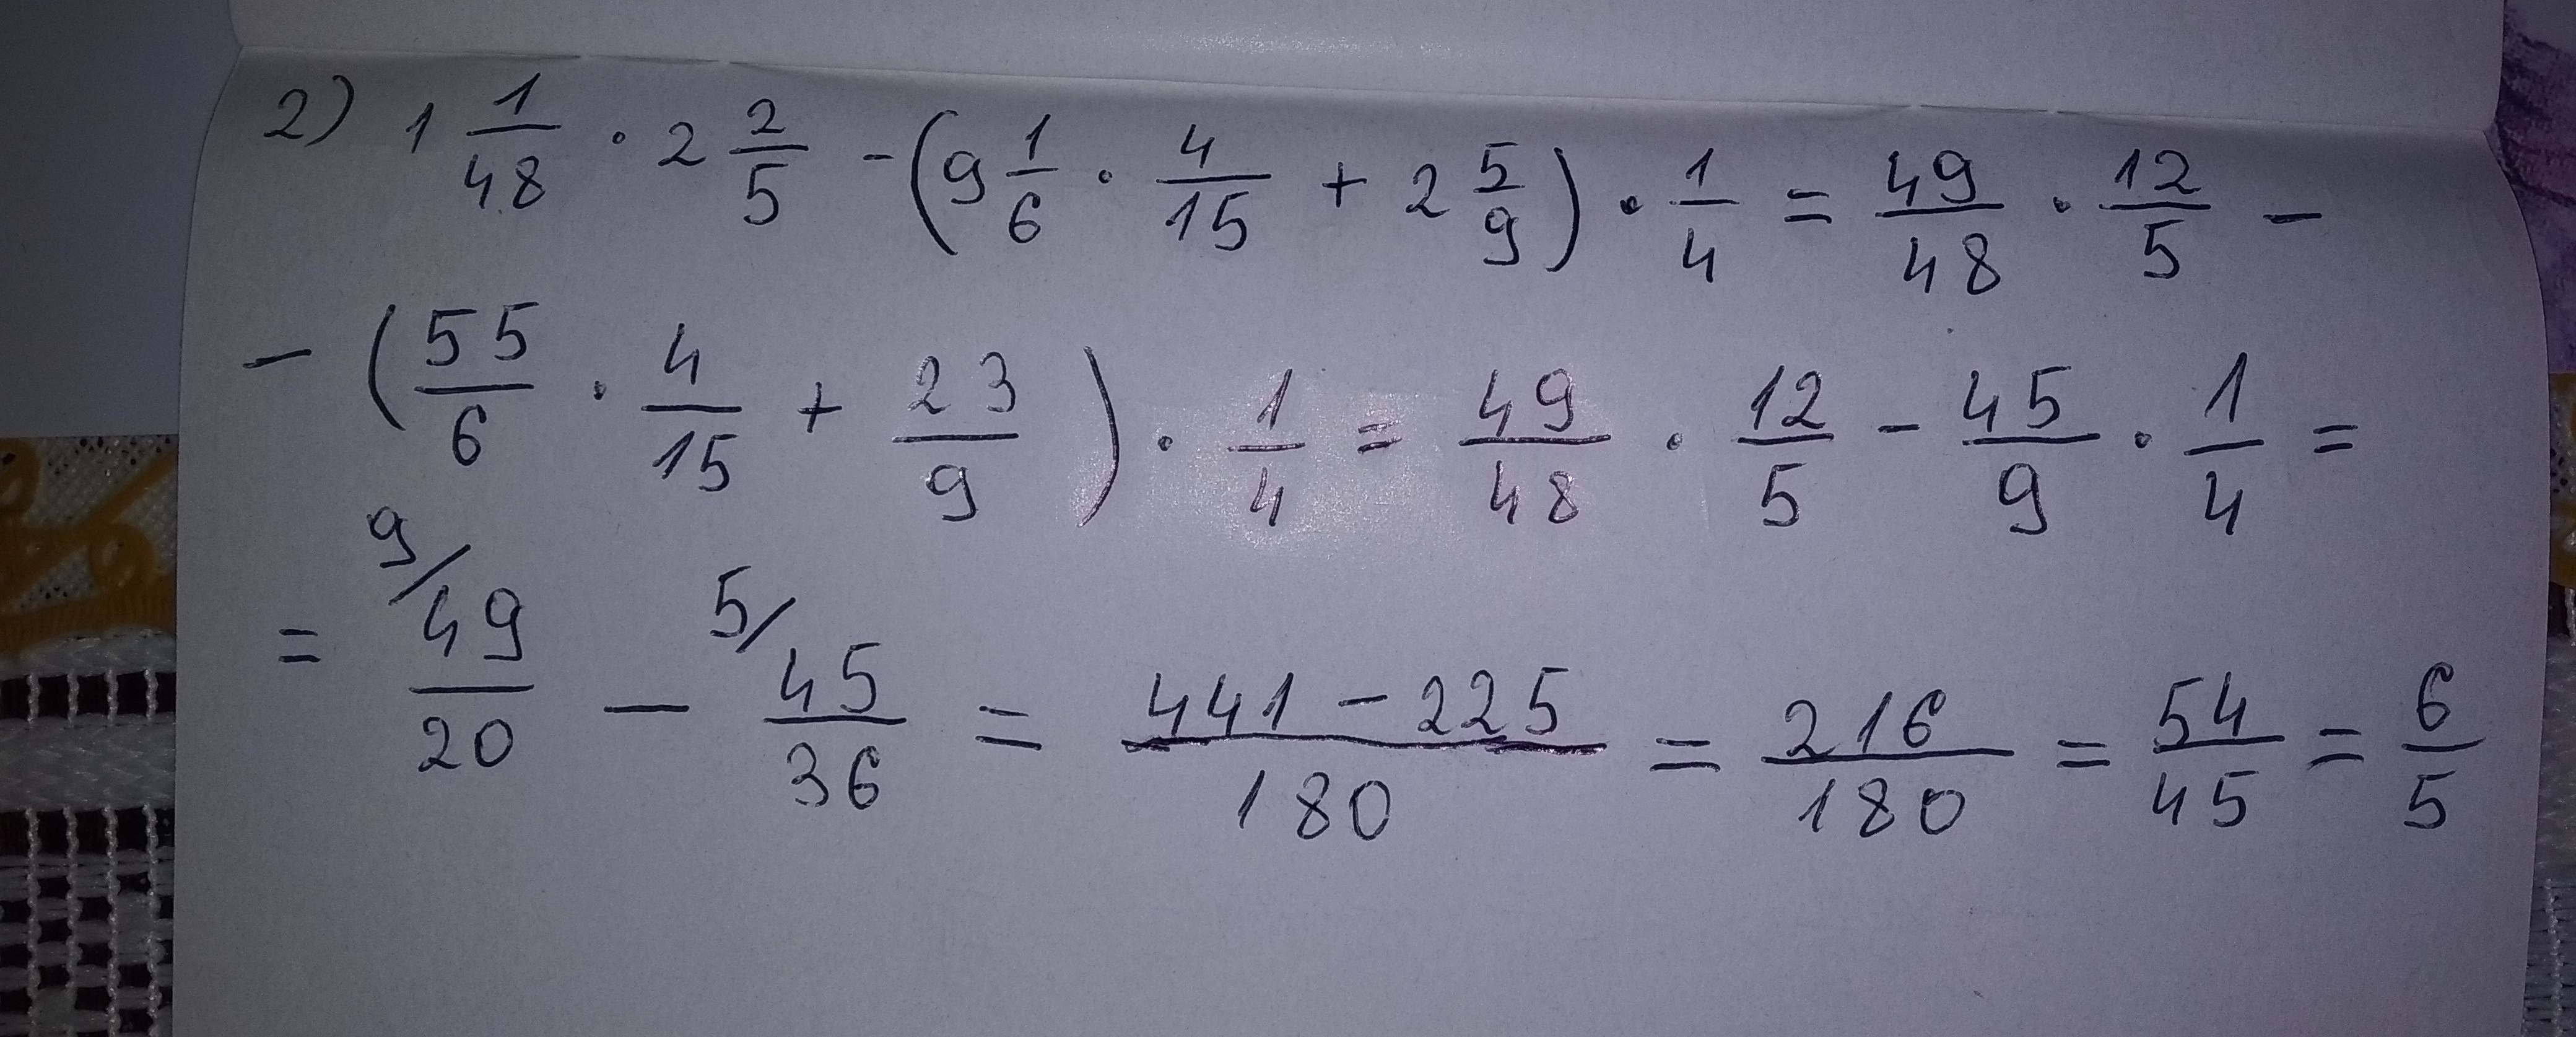 2) 1 1/48 · 2 2/5 - (9 1/6 · 4/15 + 2 5/9) · 1/4 = 49/48 · 12/5 -
- (55/6 · 4/15 + 23/9) · 1/4 = 49/48 · 12/5 - 45/9 · 1/4 =
= 9/ 49/20 - 5/ 45/36 = (441 - 225)/180 = 216/180 = 54/45 = 6/5